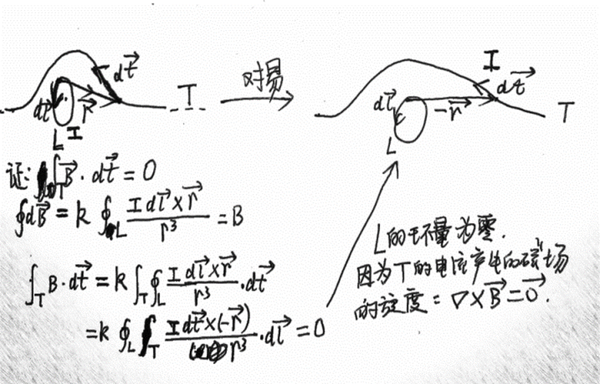 dt⃗
dl⃗
r⃗
L
I
T
对易
I
dt⃗
dl⃗
-r⃗
L
T
证: ∫_T B⃗·dt⃗ = 0
∮dB⃗ = k ∮_L (I dl⃗×r⃗)/r³ = B
∫_T B·dt⃗ = k∫_T∮_L (I dl⃗×r⃗)/r³ ·dt⃗
= k∮_L∫_T (I dt⃗×(-r⃗))/r³ ·dl⃗ = 0
L的环量为零.
因为T的电流产生的磁场
的旋度 = ∇×B⃗ = 0⃗.